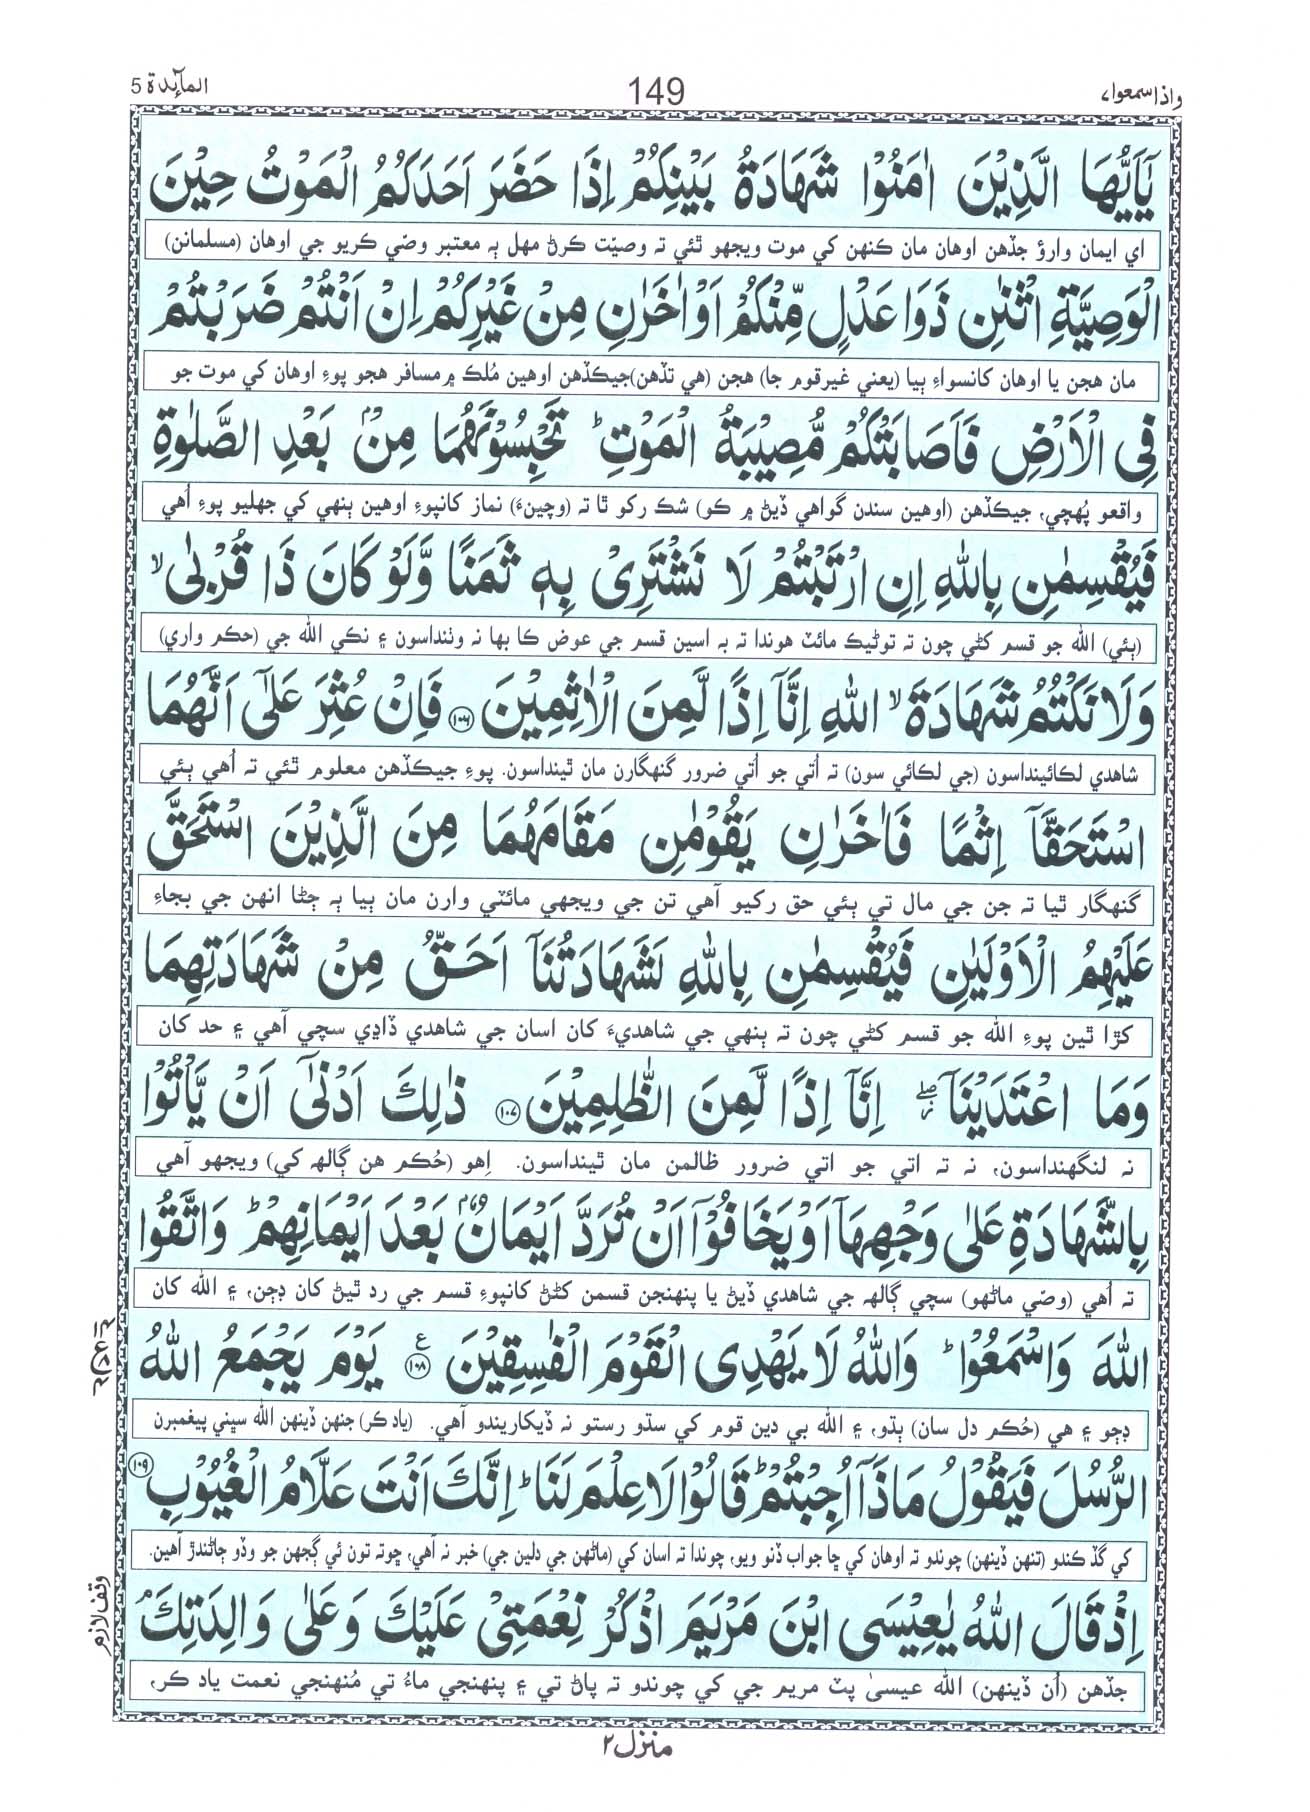 واذاسمعوا۷ 149 المآئدة 5
يٰۤاَيُّهَا الَّذِيْنَ اٰمَنُوْا شَهَادَةُ بَيْنِكُمْ اِذَا حَضَرَ اَحَدَكُمُ الْمَوْتُ حِيْنَ
اي ايمان وارؤ جڏهن اوهان مان ڪنهن کي موت ويجهو ٿئي ته وصيّت ڪرڻ مهل ٻه معتبر وصّي ڪريو جي اوهان (مسلمانن)
الْوَصِيَّةِ اثْنٰنِ ذَوَا عَدْلٍ مِّنْكُمْ اَوْ اٰخَرٰنِ مِنْ غَيْرِكُمْ اِنْ اَنْتُمْ ضَرَبْتُمْ
مان هجن يا اوهان کانسواءِ ٻيا (يعني غيرقوم جا) هجن (هي تڏهن)جيڪڏهن اوهين مُلڪ ۾مسافر هجو پوءِ اوهان کي موت جو
فِي الْاَرْضِ فَاَصَابَتْكُمْ مُّصِيْبَةُ الْمَوْتِ ؕ تَحْبِسُوْنَهُمَا مِنْۢ بَعْدِ الصَّلٰوةِ
واقعو پُهچي، جيڪڏهن (اوهين سندن گواهي ڏيڻ ۾ ڪو) شڪ رکو ٿا ته (وچينءَ) نماز کانپوءِ اوهين ٻنهي کي جهليو پوءِ اُهي
فَيُقْسِمٰنِ بِاللّٰهِ اِنِ ارْتَبْتُمْ لَا نَشْتَرِيْ بِهٖ ثَمَنًا وَّلَوْ كَانَ ذَا قُرْبٰى ۙ
(ٻئي) الله جو قسم کڻي چون ته توڻيڪ مائٽ هوندا ته به اسين قسم جي عوض ڪا بها نه وٺنداسون ۽ نڪي الله جي (حڪم واري)
وَلَا نَكْتُمُ شَهَادَةَ ۙ اللّٰهِ اِنَّاۤ اِذًا لَّمِنَ الْاٰثِمِيْنَ ۝۱۰۶ فَاِنْ عُثِرَ عَلٰۤى اَنَّهُمَا
شاهدي لڪائينداسون (جي لڪائي سون) ته اُتي جو اُتي ضرور گنهگارن مان ٿينداسون. پوءِ جيڪڏهن معلوم ٿئي ته اُهي ٻئي
اسْتَحَقَّاۤ اِثْمًا فَاٰخَرٰنِ يَقُوْمٰنِ مَقَامَهُمَا مِنَ الَّذِيْنَ اسْتَحَقَّ
گنهگار ٿيا ته جن جي مال تي ٻئي حق رکيو آهي تن جي ويجهي مائٽي وارن مان ٻيا ٻه ڄڻا انهن جي بجاءِ
عَلَيْهِمُ الْاَوْلَيٰنِ فَيُقْسِمٰنِ بِاللّٰهِ لَشَهَادَتُنَاۤ اَحَقُّ مِنْ شَهَادَتِهِمَا
کڙا ٿين پوءِ الله جو قسم کڻي چون ته ٻنهي جي شاهديءَ کان اسان جي شاهدي ڏاڍي سچي آهي ۽ حد کان
وَمَا اعْتَدَيْنَاۤ ۖ اِنَّاۤ اِذًا لَّمِنَ الظّٰلِمِيْنَ ۝۱۰۷ ذٰلِكَ اَدْنٰۤى اَنْ يَّاْتُوْا
نه لنگهنداسون، نه ته اتي جو اتي ضرور ظالمن مان ٿينداسون. اِهو (حُڪم هن ڳالهه کي) ويجهو آهي
بِالشَّهَادَةِ عَلٰى وَجْهِهَاۤ اَوْ يَخَافُوْۤا اَنْ تُرَدَّ اَيْمَانٌۢ بَعْدَ اَيْمَانِهِمْ ؕ وَاتَّقُوا
ته اُهي (وصّي ماڻهو) سچي ڳالهه جي شاهدي ڏيڻ يا پنهنجن قسمن کڻڻ کانپوءِ قسم جي رد ٿيڻ کان ڊڄن، ۽ الله کان
اللّٰهَ وَاسْمَعُوْا ؕ وَاللّٰهُ لَا يَهْدِي الْقَوْمَ الْفٰسِقِيْنَ ۝۱۰۸ ع يَوْمَ يَجْمَعُ اللّٰهُ
ڊڄو ۽ هي (حُڪم دل سان) ٻڌو، ۽ الله بي دين قوم کي سڌو رستو نه ڏيکاريندو آهي. (ياد ڪر) جنهن ڏينهن الله سڀني پيغمبرن
الرُّسُلَ فَيَقُوْلُ مَاذَاۤ اُجِبْتُمْ ؕ قَالُوْا لَا عِلْمَ لَنَا ؕ اِنَّكَ اَنْتَ عَلَّامُ الْغُيُوْبِ ۝۱۰۹
کي گڏ ڪندو (تنهن ڏينهن) چوندو ته اوهان کي ڇا جواب ڏنو ويو، چوندا ته اسان کي (ماڻهن جي دلين جي) خبر نه آهي، ڇوته تون ئي ڳجهن جو وڏو ڄاڻندڙ آهين.
وقف لازم
اِذْ قَالَ اللّٰهُ يٰعِيْسَى ابْنَ مَرْيَمَ اذْكُرْ نِعْمَتِيْ عَلَيْكَ وَعَلٰى وَالِدَتِكَ ۘ
جڏهن (اُن ڏينهن) الله عيسىٰ پٽ مريم جي کي چوندو ته پاڻ تي ۽ پنهنجي ماءُ تي مُنهنجي نعمت ياد ڪر،
منزل۲